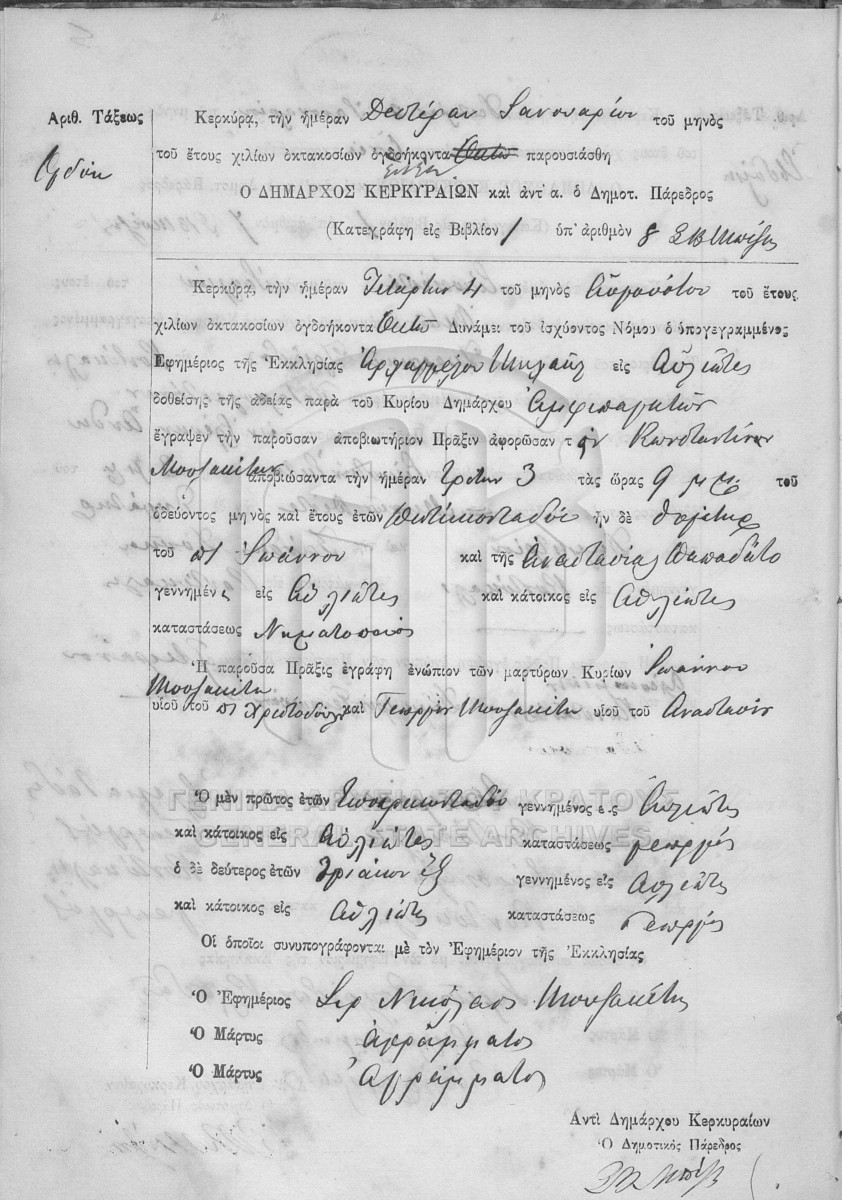 Ἀριθ. Τάξεως
Ὀγδόη
Κερκύρᾳ, τὴν ἡμέραν Δευτέραν Ἰανουαρίου τοῦ μηνὸς
τοῦ ἔτους χιλίων ὀκτακοσίων ὀγδοήκοντα ὀκτὼ παρουσιάσθη
ἐννέα
Ὁ ΔΗΜΑΡΧΟΣ ΚΕΡΚΥΡΑΙΩΝ καὶ ἀντ' α. ὁ Δημοτ. Πάρεδρος
(Κατεγράφη εἰς Βιβλίον 1 ὑπ' ἀριθμὸν 8
Κερκύρᾳ, τὴν ἡμέραν Τετάρτην 4 τοῦ μηνὸς Αὐγούστου τοῦ ἔτους
χιλίων ὀκτακοσίων ὀγδοήκοντα ὀκτὼ Δυνάμει τοῦ ἰσχύοντος Νόμου ὁ ὑπογεγραμμένος
Ἐφημέριος τῆς Ἐκκλησίας Ἀρχαγγέλου Μιχαὴλ εἰς Αὐλιῶτες
δοθείσης τῆς ἀδείας παρὰ τοῦ Κυρίου Δημάρχου Ἀμφιπαγιτῶν
ἔγραψεν τὴν παροῦσαν ἀποβιωτήριον Πρᾶξιν ἀφορῶσαν τὸν Κωνσταντῖνον
Μουζακίτην ἀποβιώσαντα τὴν ἡμέραν Τρίτην 3 τὰς ὥρας 9 μ.μ. τοῦ
ὁδεύοντος μηνὸς καὶ ἔτους ἐτῶν ἦν δὲ
τοῦ π Ἰωάννου καὶ τῆς Ἀναστασίας Παπαδάτο
γεννημέν εἰς Αὐλιῶτες καὶ κάτοικος εἰς Αὐλιῶτες
καταστάσεως Κτηματοποιός
Ἡ παροῦσα Πρᾶξις ἐγράφη ἐνώπιον τῶν μαρτύρων Κυρίων Ἰωάννου
Μουζακίτη
υἱοῦ τοῦ π Χριστοδούλου καὶ Γεωργίου Μουζακίτη υἱοῦ τοῦ Ἀναστασίου
Ὁ μὲν πρῶτος ἐτῶν γεννημένος εἰς Αὐλιῶτες
ΓΕΝΙΚΑ ΑΡΧΕΙΑ ΤΟΥ ΚΡΑΤΟΥΣ
GENERAL STATE ARCHIVES
καὶ κάτοικος εἰς Αὐλιῶτες καταστάσεως γεωργός
ὁ δὲ δεύτερος ἐτῶν τριάκον ἓξ γεννημένος εἰς Αὐλιῶτες
καὶ κάτοικος εἰς Αὐλιῶτες καταστάσεως Γεωργός
Οἱ ὁποῖοι συνυπογράφονται μὲ τὸν Ἐφημέριον τῆς Ἐκκλησίας
Ὁ Ἐφημέριος Ἱερ Νικόλαος Μουζακίτης
Ὁ Μάρτυς ἀγράμματος
Ὁ Μάρτυς Ἀγράμματος
Ἀντὶ Δημάρχου Κερκυραίων
Ὁ Δημοτικὸς Πάρεδρος